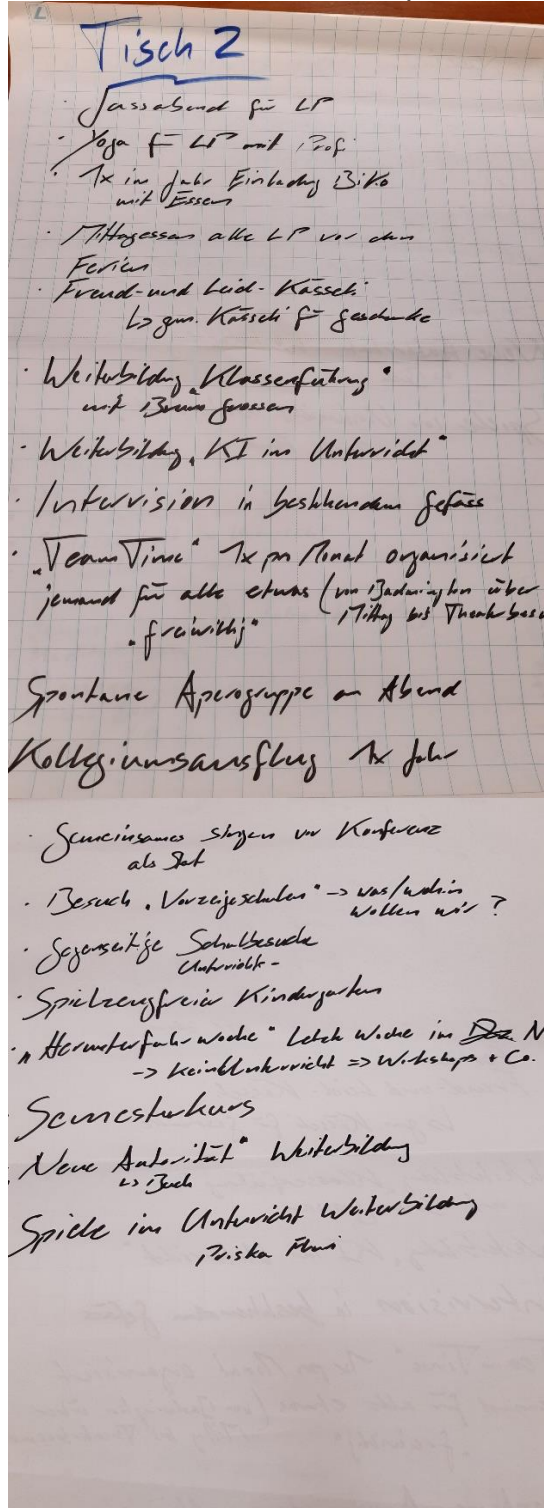 Tisch 2
· Jassabend für LP
· Yoga f LP mit Profi
· 1x im Jahr Einladung BiKo
mit Essen
· Mittagessen alle LP vor den
Ferien
· Freud- und Leid- Kässeli
↳ gem. Kässeli f Geschenke
· Weiterbildung „Klassenführung"
mit Bruno Grossen
· Weiterbildung „KI im Unterricht"
· Intervision in bestehendem Gefäss
· „Team Time" 1x pro Monat organisiert
jemand für alle etwas (von Badminton über
Mittag bis Theaterbesu
„freiwillig"
Spontane Aperogruppe am Abend
Kollegiumsausflug 1x Jahr
· Gemeinsames Singen vor Konferenz
als Start
· Besuch „Vorzeigeschulen" -> was/wohin
wollen wir?
· Gegenseitige Schulbesuche
Unterrichts-
· Spielzeugfreier Kindergarten
· „Herunterfahrwoche" Letzte Woche im N
-> kein Unterricht => Workshops + Co.
Semesterkurs
„Neue Autorität" Weiterbildung
↳ Buch
Spiele im Unterricht Weiterbildung
Priska